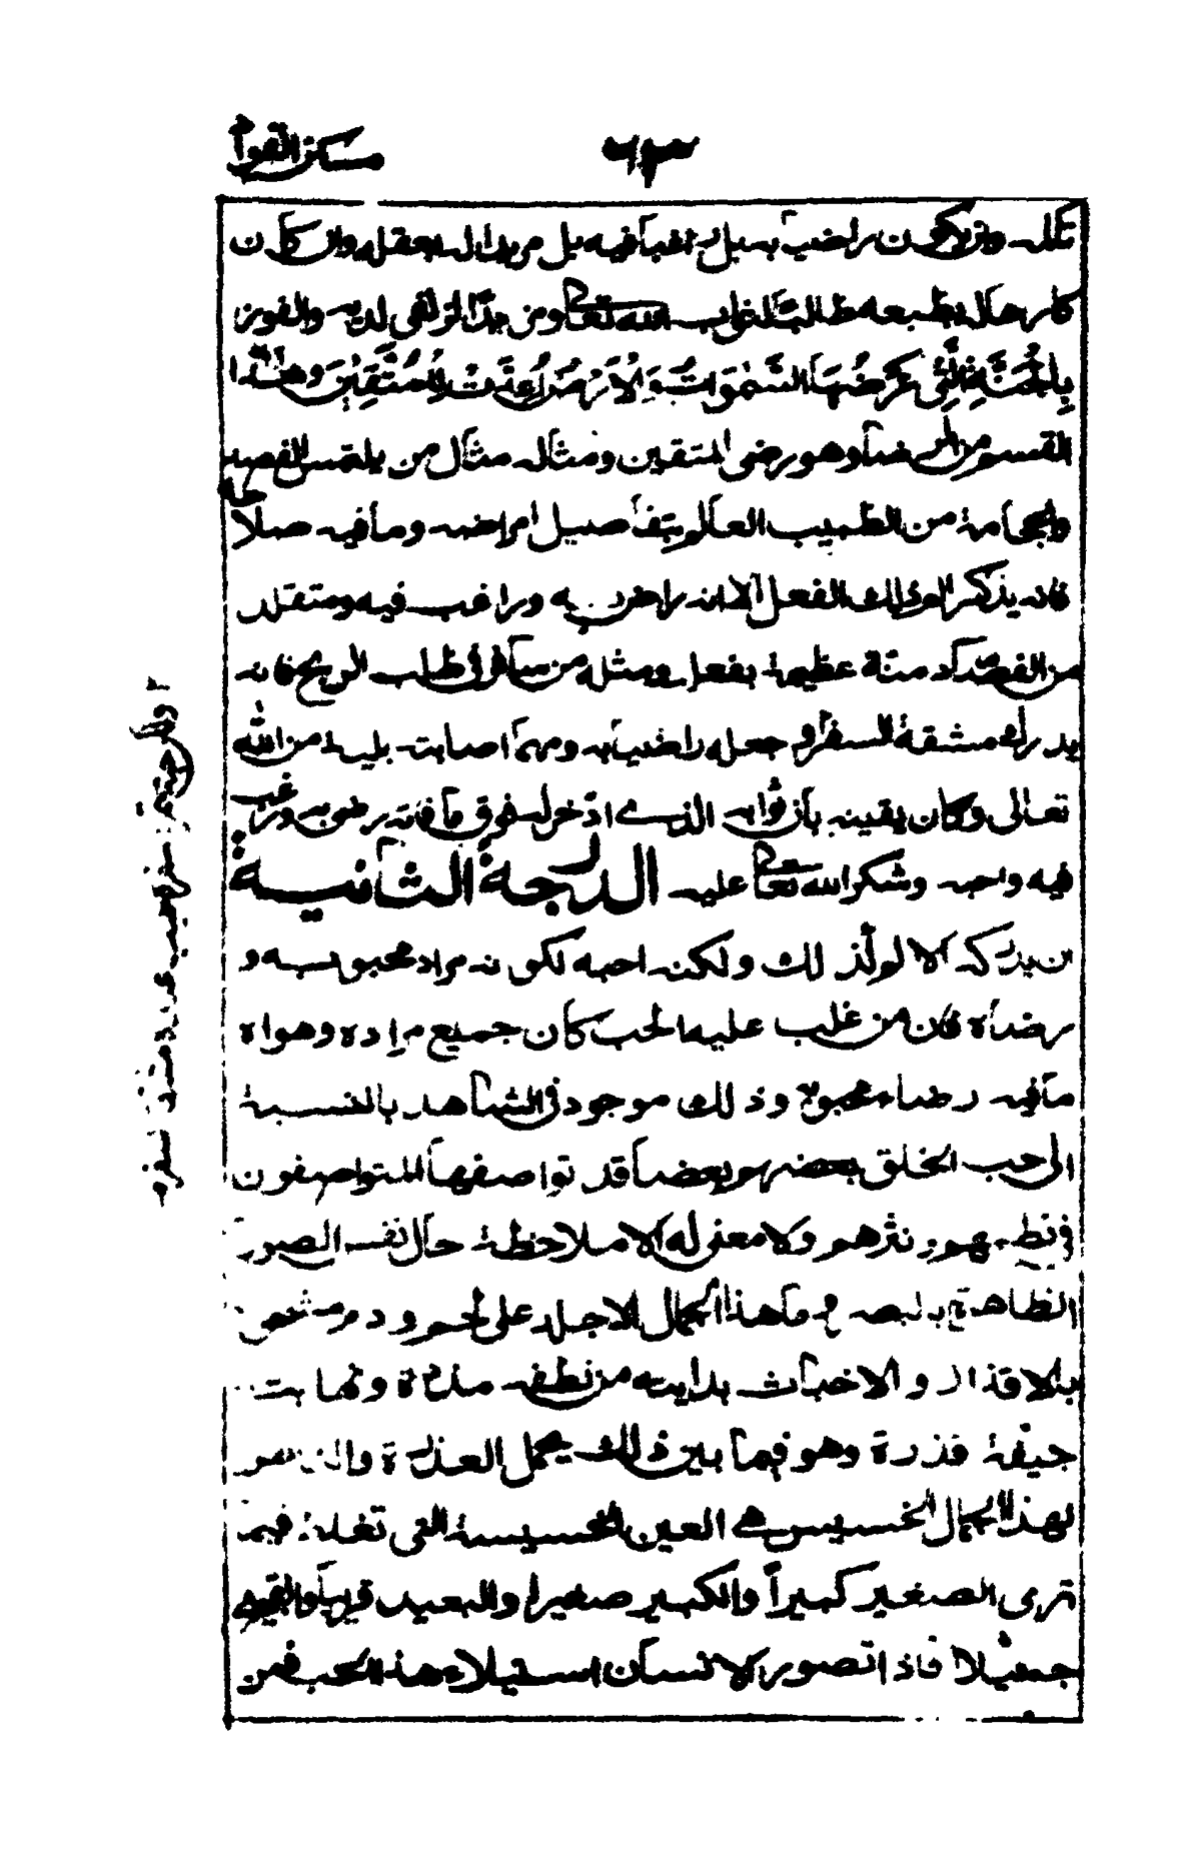 مسكن الفؤاد ٦٣
تكلـه وان يكون راضيا به بل راغبا فيه بل مريدا له بعقله وان كان
كارها له بطبعه طالبا لثواب الله تعالى ومزيد الزلفى لديه والفوز
بِالجَنَّةِ الَّتِي عَرْضُهَا السَّمٰوَاتُ وَالْاَرْضُ اُعِدَّتْ لِلْمُتَّقِيْنَ وهذا
القسم من الرضا وهو رضى المتقين ومثاله مثال من يلتمس الفصد
والحجامة من الطبيب العالم بتفاصيل امراضه وما فيه صلاحه
فانه يدرك الم ذلك الفعل الا انه راض به وراغب فيه ومتقلد
من الفصاد منة عظيمة بفعله ومثله من سافر في طلب الربح فانه
يدرك مشقة السفر و جعله راضيا به ومهما اصابته بلية من الله
تعالى وكان يقينه بان ثوابه الذى ادّخر له فوق ما فاته رضى به ورغب
فيه واحبه وشكر الله تعالى عليه الدرجة الثانية
ان يدرك الالم كذلك ولكنه احبه لكونه مراد محبوبه و
رضاه فان من غلب عليه الحب كان جميع مراده وهواه
ما فيه رضاء محبوبه وذلك موجود في الشاهد بالنسبة
الى حب الخلق بعضهم بعضا قد تواصفها المتواصفون
في نظمهم ونثرهم ولا معنى له الا ملاحظة حال نفس الصورة
الظاهرة بالبصر وما هذا الجمال الا جلد على لحم ودم مشحون
بالاقذار والاخباث بدايته من نطفة مذرة ونهايته
جيفة قذرة وهو فيما بين ذلك يحمل العذرة والناظر
لهذا الجمال الخسيس هي العين الخسيسة التى تغلط فيما
ترى الصغير كبيراً والكبير صغيرا والبعيد قريبا والقبيح
جميلا فاذا تصور الانسان استيلاء هذا الحب فمن